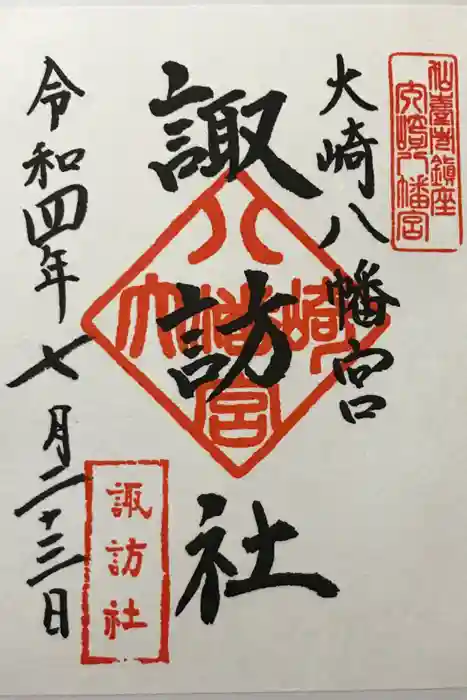 仙臺市鎮座
大崎八幡宮
大崎八幡宮
諏訪社
大崎八幡宮
諏訪社
令和四年七月二十三日